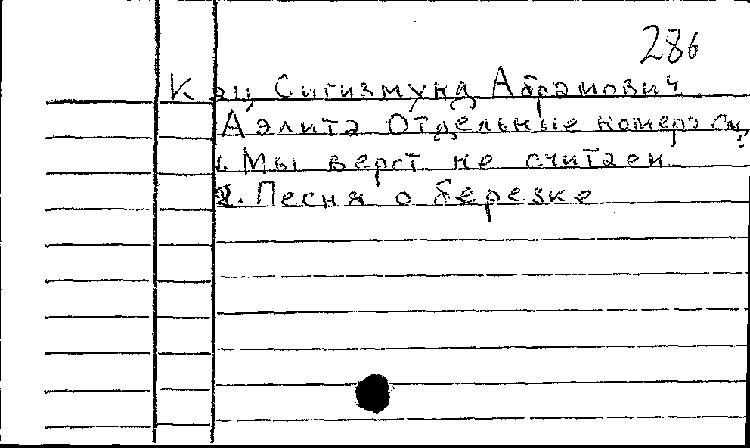 286
Кац Сигизмунд Абрамович
Аэлита Отдельные номера сц
1. Мы верст не считаем
2. Песня о березке